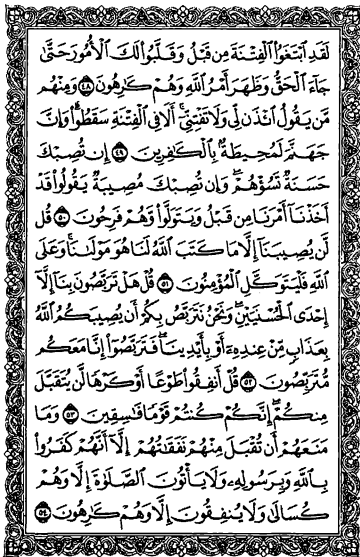 لَقَدِ ابْتَغَوُا الْفِتْنَةَ مِن قَبْلُ وَقَلَّبُوا لَكَ الْأُمُورَ حَتَّىٰ
جَاءَ الْحَقُّ وَظَهَرَ أَمْرُ اللَّهِ وَهُمْ كَارِهُونَ ٤٨ وَمِنْهُم
مَّن يَقُولُ ائْذَن لِّي وَلَا تَفْتِنِّي أَلَا فِي الْفِتْنَةِ سَقَطُوا وَإِنَّ
جَهَنَّمَ لَمُحِيطَةٌ بِالْكَافِرِينَ ٤٩ إِن تُصِبْكَ
حَسَنَةٌ تَسُؤْهُمْ وَإِن تُصِبْكَ مُصِيبَةٌ يَقُولُوا قَدْ
أَخَذْنَا أَمْرَنَا مِن قَبْلُ وَيَتَوَلَّوا وَّهُمْ فَرِحُونَ ٥٠ قُل
لَّن يُصِيبَنَا إِلَّا مَا كَتَبَ اللَّهُ لَنَا هُوَ مَوْلَانَا وَعَلَى
اللَّهِ فَلْيَتَوَكَّلِ الْمُؤْمِنُونَ ٥١ قُلْ هَلْ تَرَبَّصُونَ بِنَا إِلَّا
إِحْدَى الْحُسْنَيَيْنِ وَنَحْنُ نَتَرَبَّصُ بِكُمْ أَن يُصِيبَكُمُ اللَّهُ
بِعَذَابٍ مِّنْ عِندِهِ أَوْ بِأَيْدِينَا فَتَرَبَّصُوا إِنَّا مَعَكُم
مُّتَرَبِّصُونَ ٥٢ قُلْ أَنفِقُوا طَوْعًا أَوْ كَرْهًا لَّن يُتَقَبَّلَ
مِنكُمْ إِنَّكُمْ كُنتُمْ قَوْمًا فَاسِقِينَ ٥٣ وَمَا
مَنَعَهُمْ أَن تُقْبَلَ مِنْهُمْ نَفَقَاتُهُمْ إِلَّا أَنَّهُمْ كَفَرُوا
بِاللَّهِ وَبِرَسُولِهِ وَلَا يَأْتُونَ الصَّلَاةَ إِلَّا وَهُمْ
كُسَالَىٰ وَلَا يُنفِقُونَ إِلَّا وَهُمْ كَارِهُونَ ٥٤